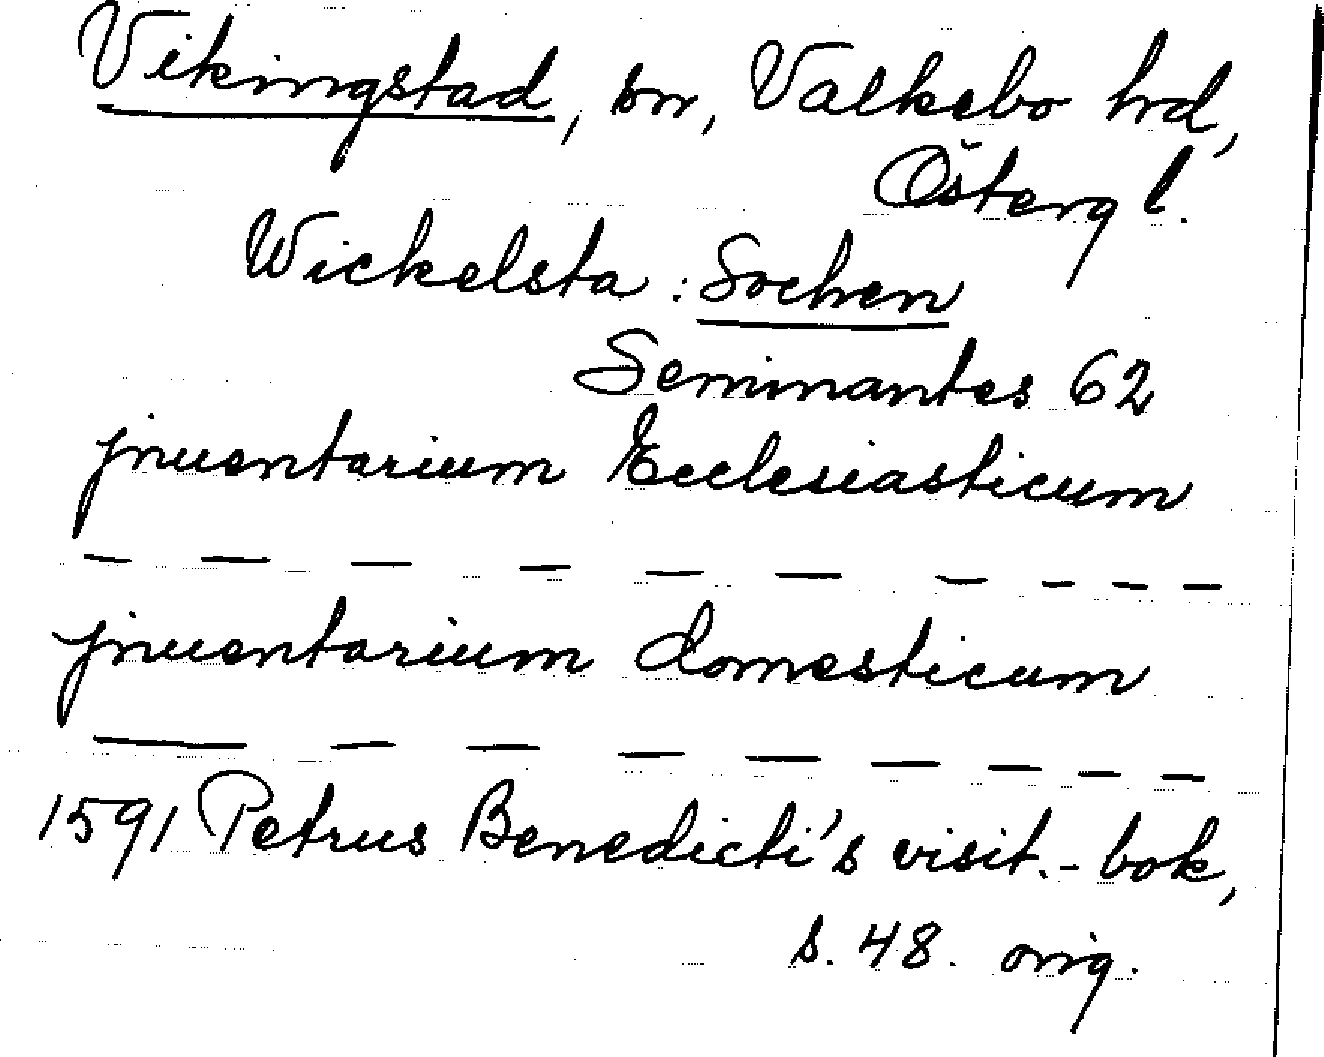 Vikingstad, sn, Valkebo hrd,
Österg l.
Wickelsta : Sochen
Seminantes 62
jnuentarium Ecclesiasticum
— — — — — — — — — —
jnuentarium domesticum
— — — — — — — — —
1591 Petrus Benedicti's visit.- bok,
s. 48. orig.